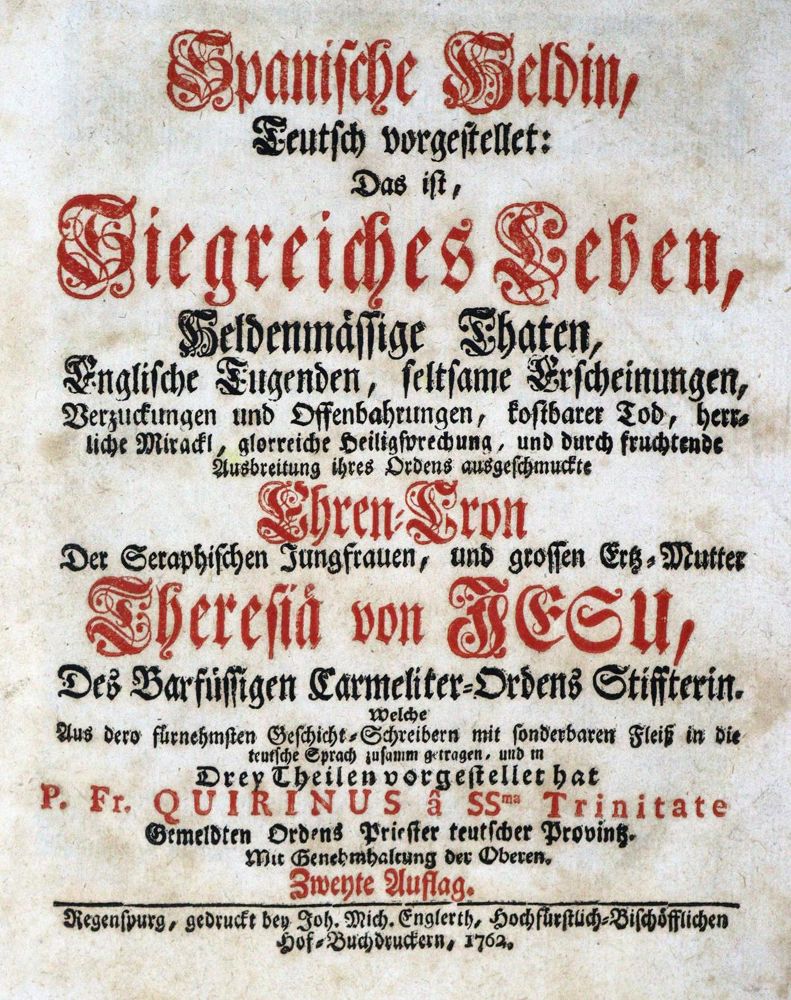 Spanische Heldin,
Teutsch vorgestellet:
Das ist,
Siegreiches Leben,
Heldenmässige Thaten,
Englische Tugenden, seltsame Erscheinungen,
Verzuckungen und Offenbahrungen, kostbarer Tod, herr-
liche Mirackl, glorreiche Heiligsprechung, und durch fruchtende
Ausbreitung ihres Ordens ausgeschmuckte
Ehren-Cron
Der Seraphischen Jungfrauen, und grossen Ertz-Mutter
Theresiä von JESU,
Des Barfüssigen Carmeliter-Ordens Stiffterin.
Welche
Aus dero fürnehmsten Geschicht-Schreibern mit sonderbaren Fleiß in die
teutsche Sprach zusamm getragen, und in
Drey Theilen vorgestellet hat
P. Fr. QUIRINUS â SSma Trinitate
Gemeldten Ordens Priester teutscher Provintz.
Mit Genehmhaltung der Oberen.
Zweyte Auflag.
Regenspurg, gedruckt bey Joh. Mich. Englerth, Hochfürstlich-Bischöfflichen
Hof-Buchdruckern, 1762.